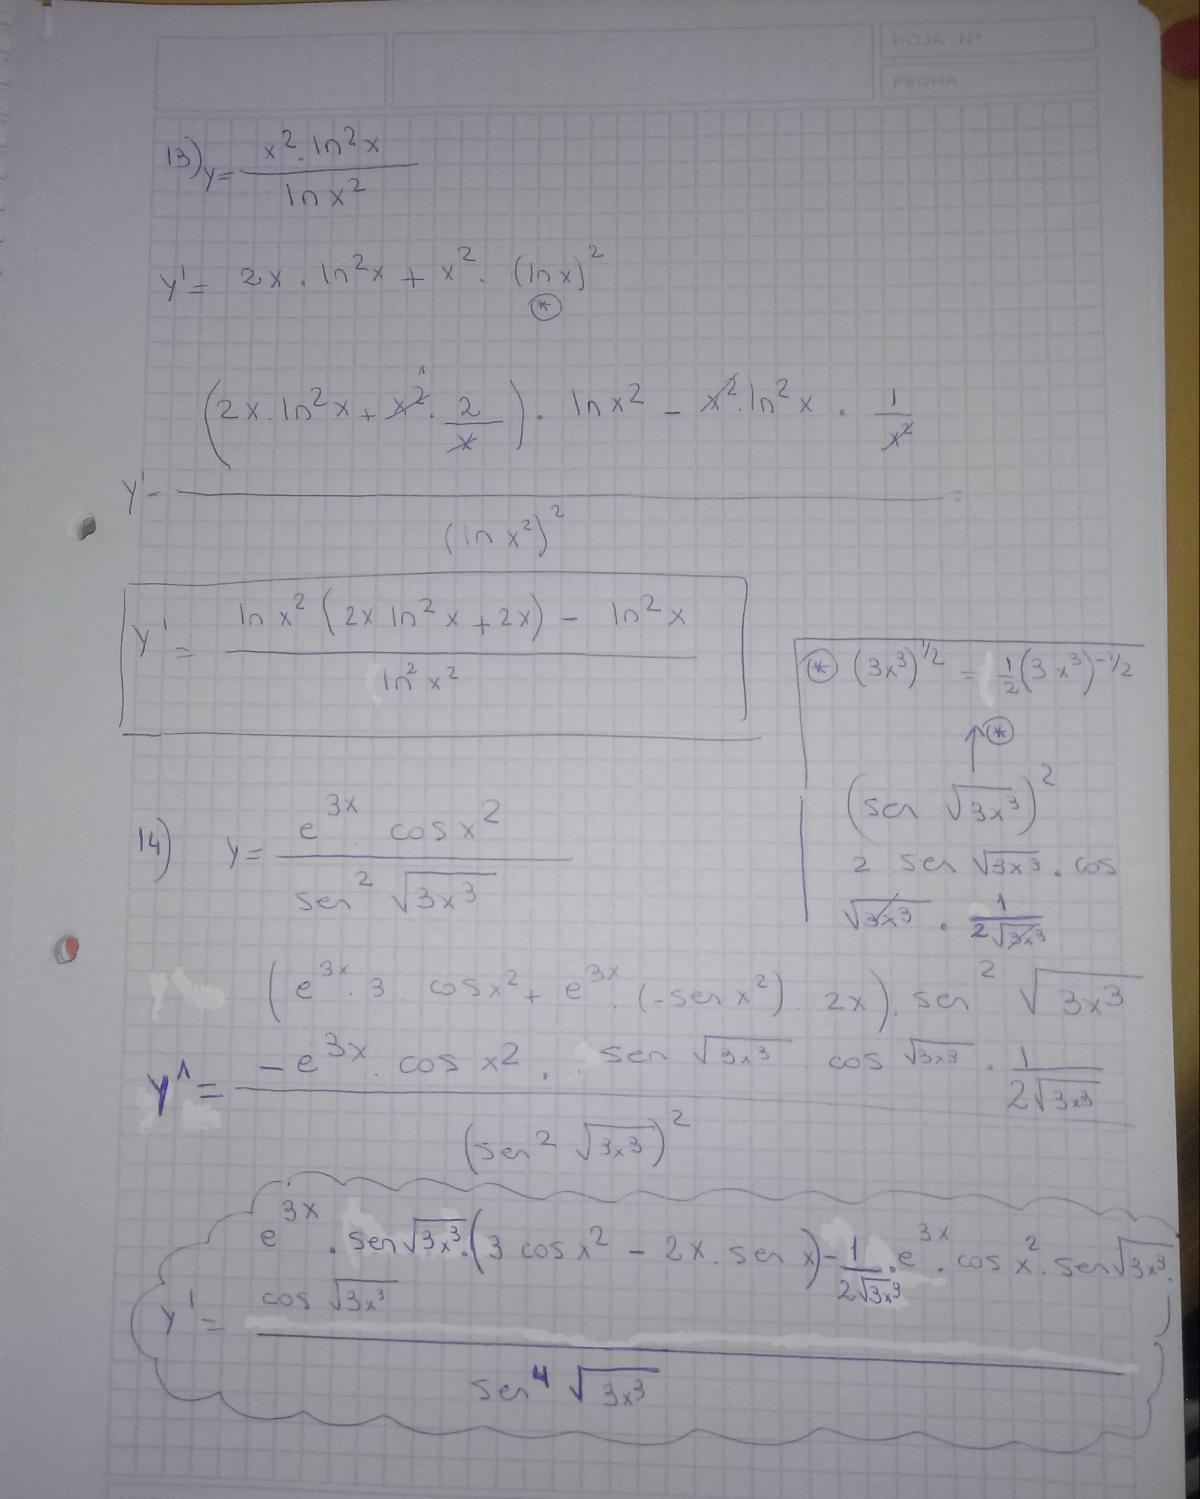 HOJA Nº
FECHA
13) y = x² · ln²x / ln x²
y' = 2x · ln²x + x² · (ln x)²
(*)
(2x · ln²x + x² · 2/x) · ln x² - x² · ln²x · 1/x²
1
y' - =
(ln x²)²
y' = ln x² (2x ln²x + 2x) - ln²x / ln² x²
(*) (3x³)^1/2 = 1/2 (3x³)^-1/2
↑ (*)
(sen √3x³)²
2 sen √3x³ · cos
√3x³ · 1/2√3x³
14) y = e^3x · cos x² / sen² √3x³
(e^3x · 3 · cos x² + e^3x · (-sen x²) · 2x) · sen² √3x³
- e^3x · cos x² · sen √3x³ cos √3x³ · 1/2√3x³
y' =
(sen² √3x³)²
e^3x · sen √3x³ · (3 cos x² - 2x · sen x) - 1/2√3x³ · e^3x · cos x² · sen √3x³ ·
cos √3x³
y' =
sen⁴ √3x³